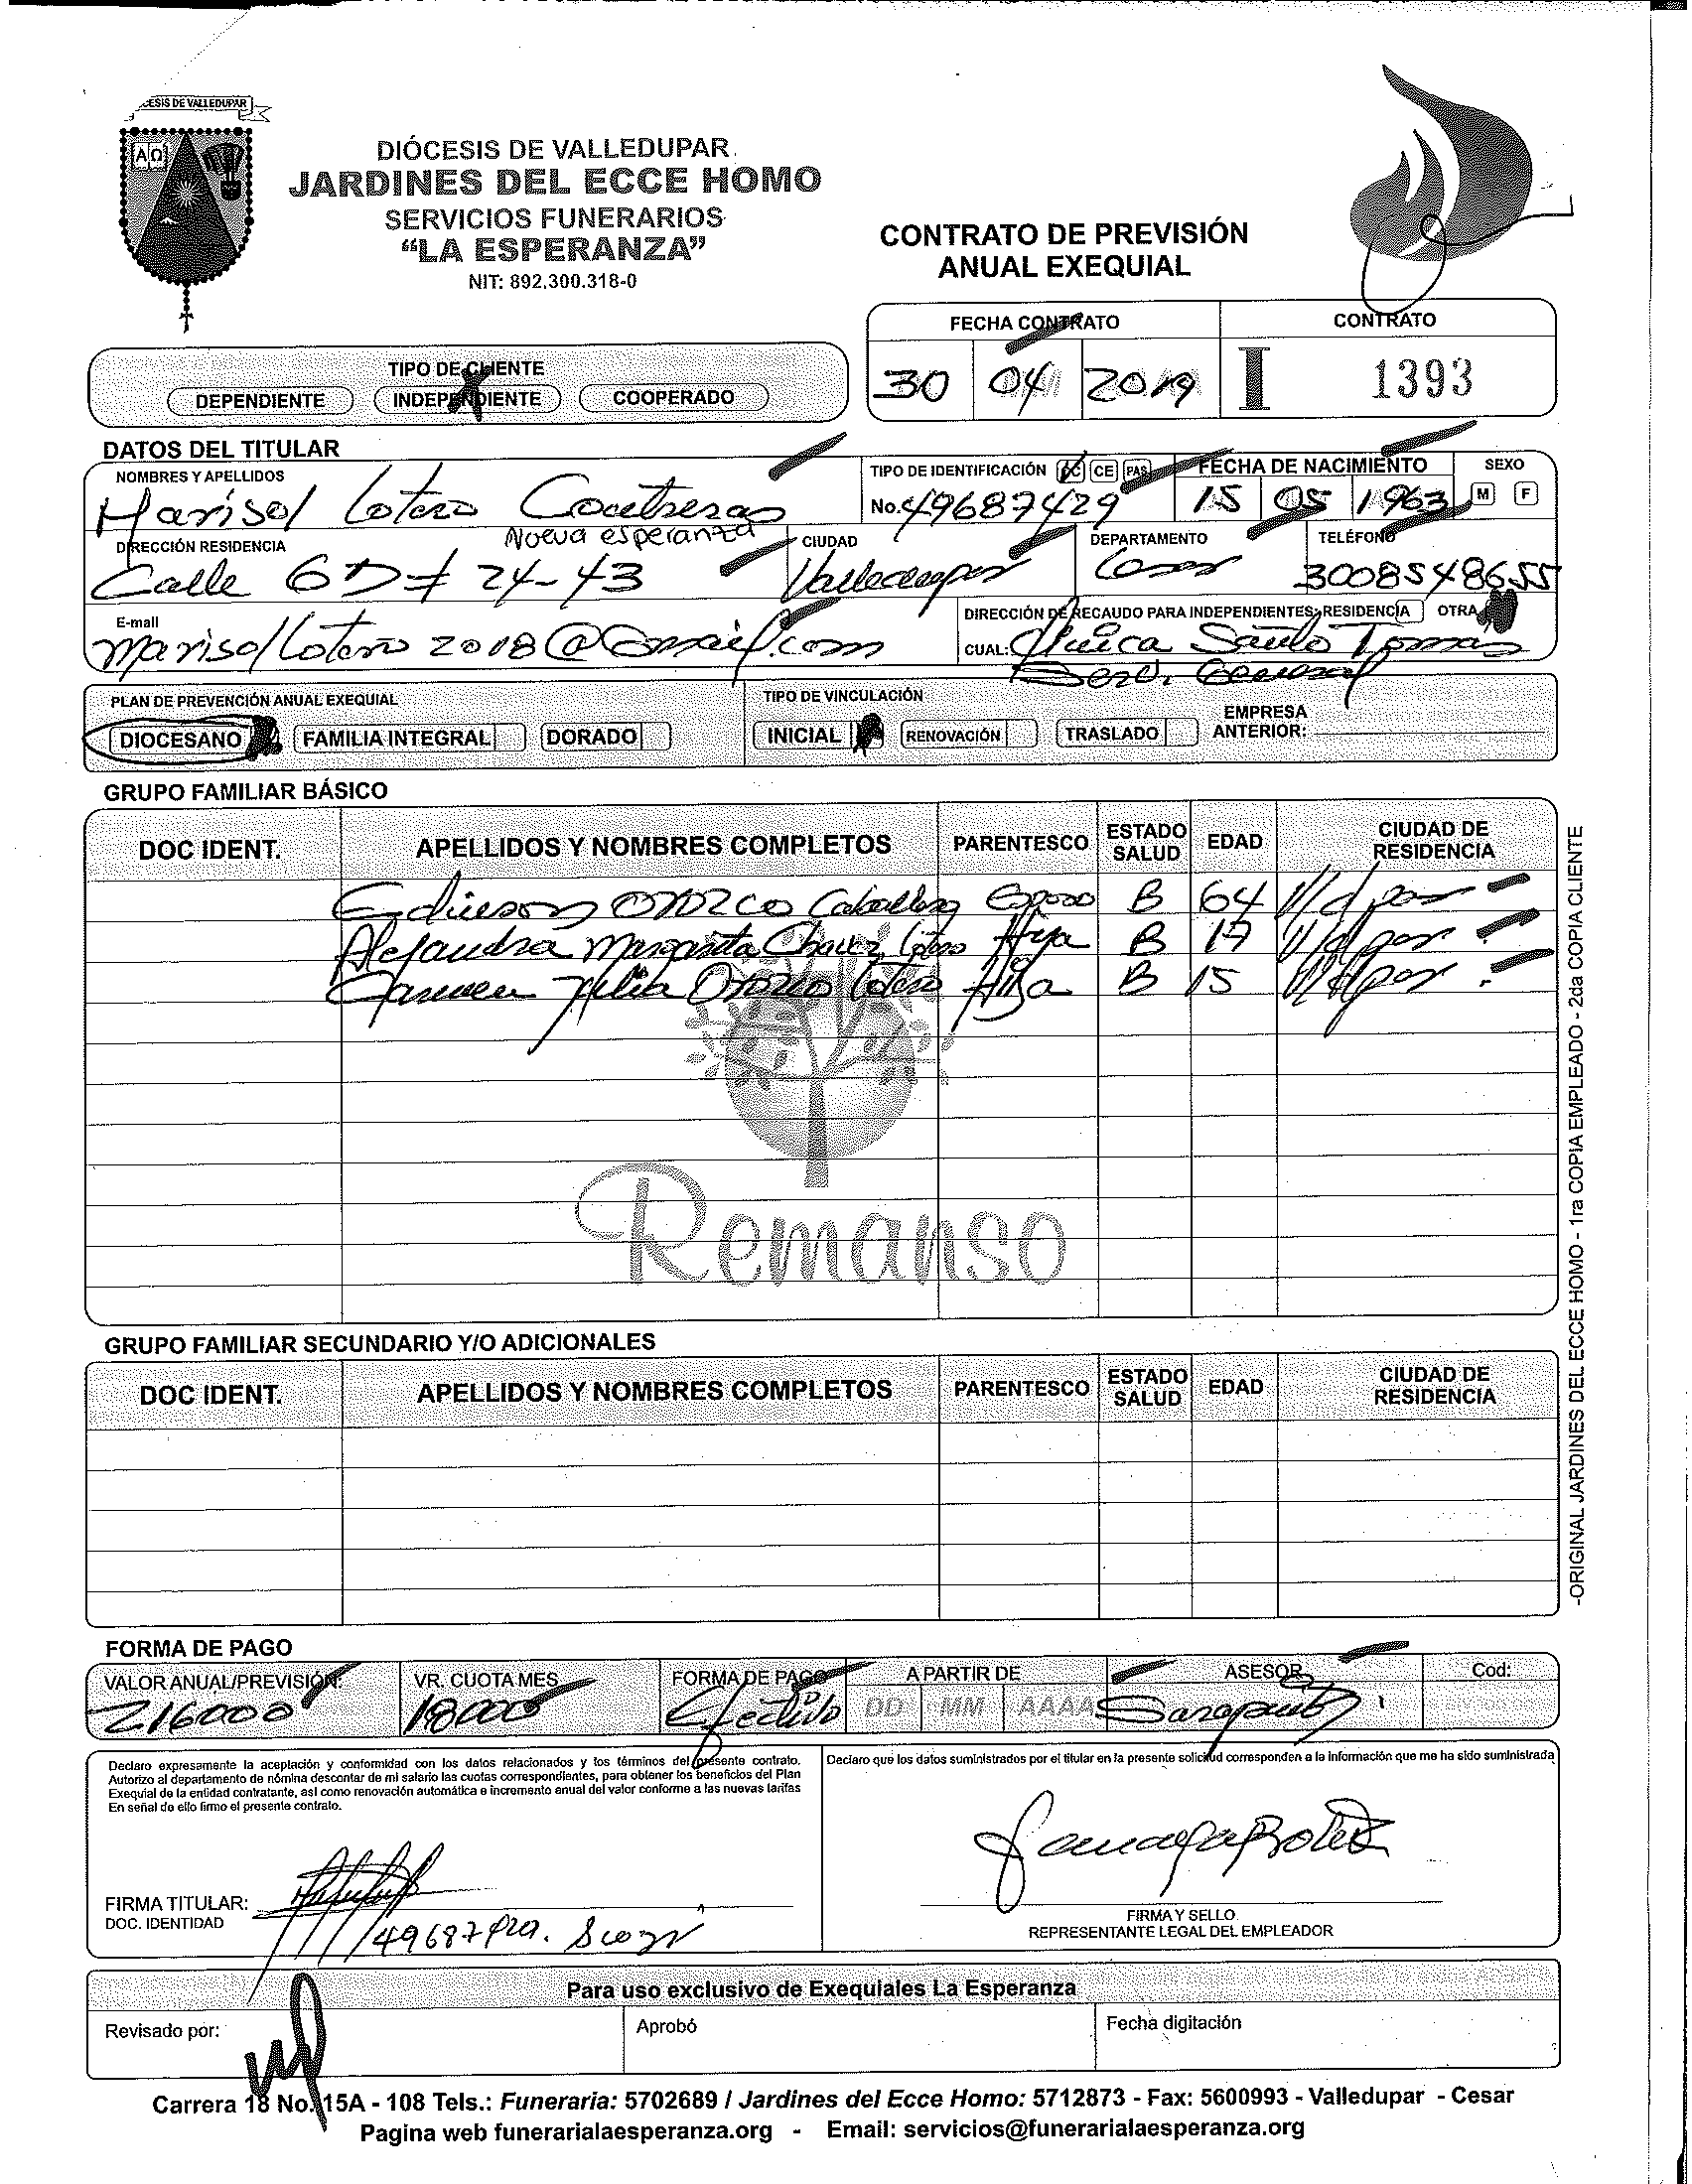 CESIS DE VALLEDUPAR
A Ω
DIÓCESIS DE VALLEDUPAR
JARDINES DEL ECCE HOMO
SERVICIOS FUNERARIOS
“LA ESPERANZA”
NIT: 892,300.318-0
CONTRATO DE PREVISIÓN
ANUAL EXEQUIAL
FECHA CONTRATO CONTRATO
30 04 2019 I 1393
TIPO DE CLIENTE
DEPENDIENTE INDEPENDIENTE COOPERADO
DATOS DEL TITULAR
NOMBRES Y APELLIDOS TIPO DE IDENTIFICACIÓN CC CE PAS FECHA DE NACIMIENTO SEXO
Marisol Lotero Contreras No. 49687429 15 05 1963 M F
Nueva esperanza
DIRECCIÓN RESIDENCIA CIUDAD DEPARTAMENTO TELÉFONO
Calle 6D # 24-43 Valledupar Cesar 3008548655
E-mail DIRECCIÓN DE RECAUDO PARA INDEPENDIENTES: RESIDENCIA OTRA
marisol lotero 2018@Gmail.com CUAL: Clinica Santo Tomas
Serv. General
PLAN DE PREVENCIÓN ANUAL EXEQUIAL TIPO DE VINCULACIÓN
DIOCESANO FAMILIA INTEGRAL DORADO INICIAL RENOVACIÓN TRASLADO EMPRESA ANTERIOR:
GRUPO FAMILIAR BÁSICO
DOC IDENT. APELLIDOS Y NOMBRES COMPLETOS PARENTESCO ESTADO SALUD EDAD CIUDAD DE RESIDENCIA
Edinson Orozco Caballero Esposo B 64 V/dpar
Alejandra Margarita Chavez Lotero Hija B 17 V/dpar
Carmen Julia Orozco Lotero Hija B 15 V/dpar
Remanso
GRUPO FAMILIAR SECUNDARIO Y/O ADICIONALES
DOC IDENT. APELLIDOS Y NOMBRES COMPLETOS PARENTESCO ESTADO SALUD EDAD CIUDAD DE RESIDENCIA
-ORIGINAL JARDINES DEL ECCE HOMO - 1ra COPIA EMPLEADO - 2da COPIA CLIENTE
FORMA DE PAGO
VALOR ANUAL/PREVISIÓN: VR. CUOTA MES FORMA DE PAGO A PARTIR DE ASESOR Cod:
216000 18000 Efectivo DD MM AAAA
Declaro expresamente la aceptación y conformidad con los datos relacionados y los términos del presente contrato.
Autorizo al departamento de nómina descontar de mi salario las cuotas correspondientes, para obtener los beneficios del Plan
Exequial de la entidad contratante, así como renovación automática e incremento anual del valor conforme a las nuevas tarifas
En señal de ello firmo el presente contrato.
Declaro que los datos suministrados por el titular en la presente solicitud corresponden a la información que me ha sido suministrada
FIRMA TITULAR:
DOC. IDENTIDAD
FIRMA Y SELLO
REPRESENTANTE LEGAL DEL EMPLEADOR
Para uso exclusivo de Exequiales La Esperanza
Revisado por: Aprobó Fecha digitación
Carrera 18 No. 15A - 108 Tels.: Funeraria: 5702689 / Jardines del Ecce Homo: 5712873 - Fax: 5600993 - Valledupar - Cesar
Pagina web funerarialaesperanza.org - Email: servicios@funerarialaesperanza.org